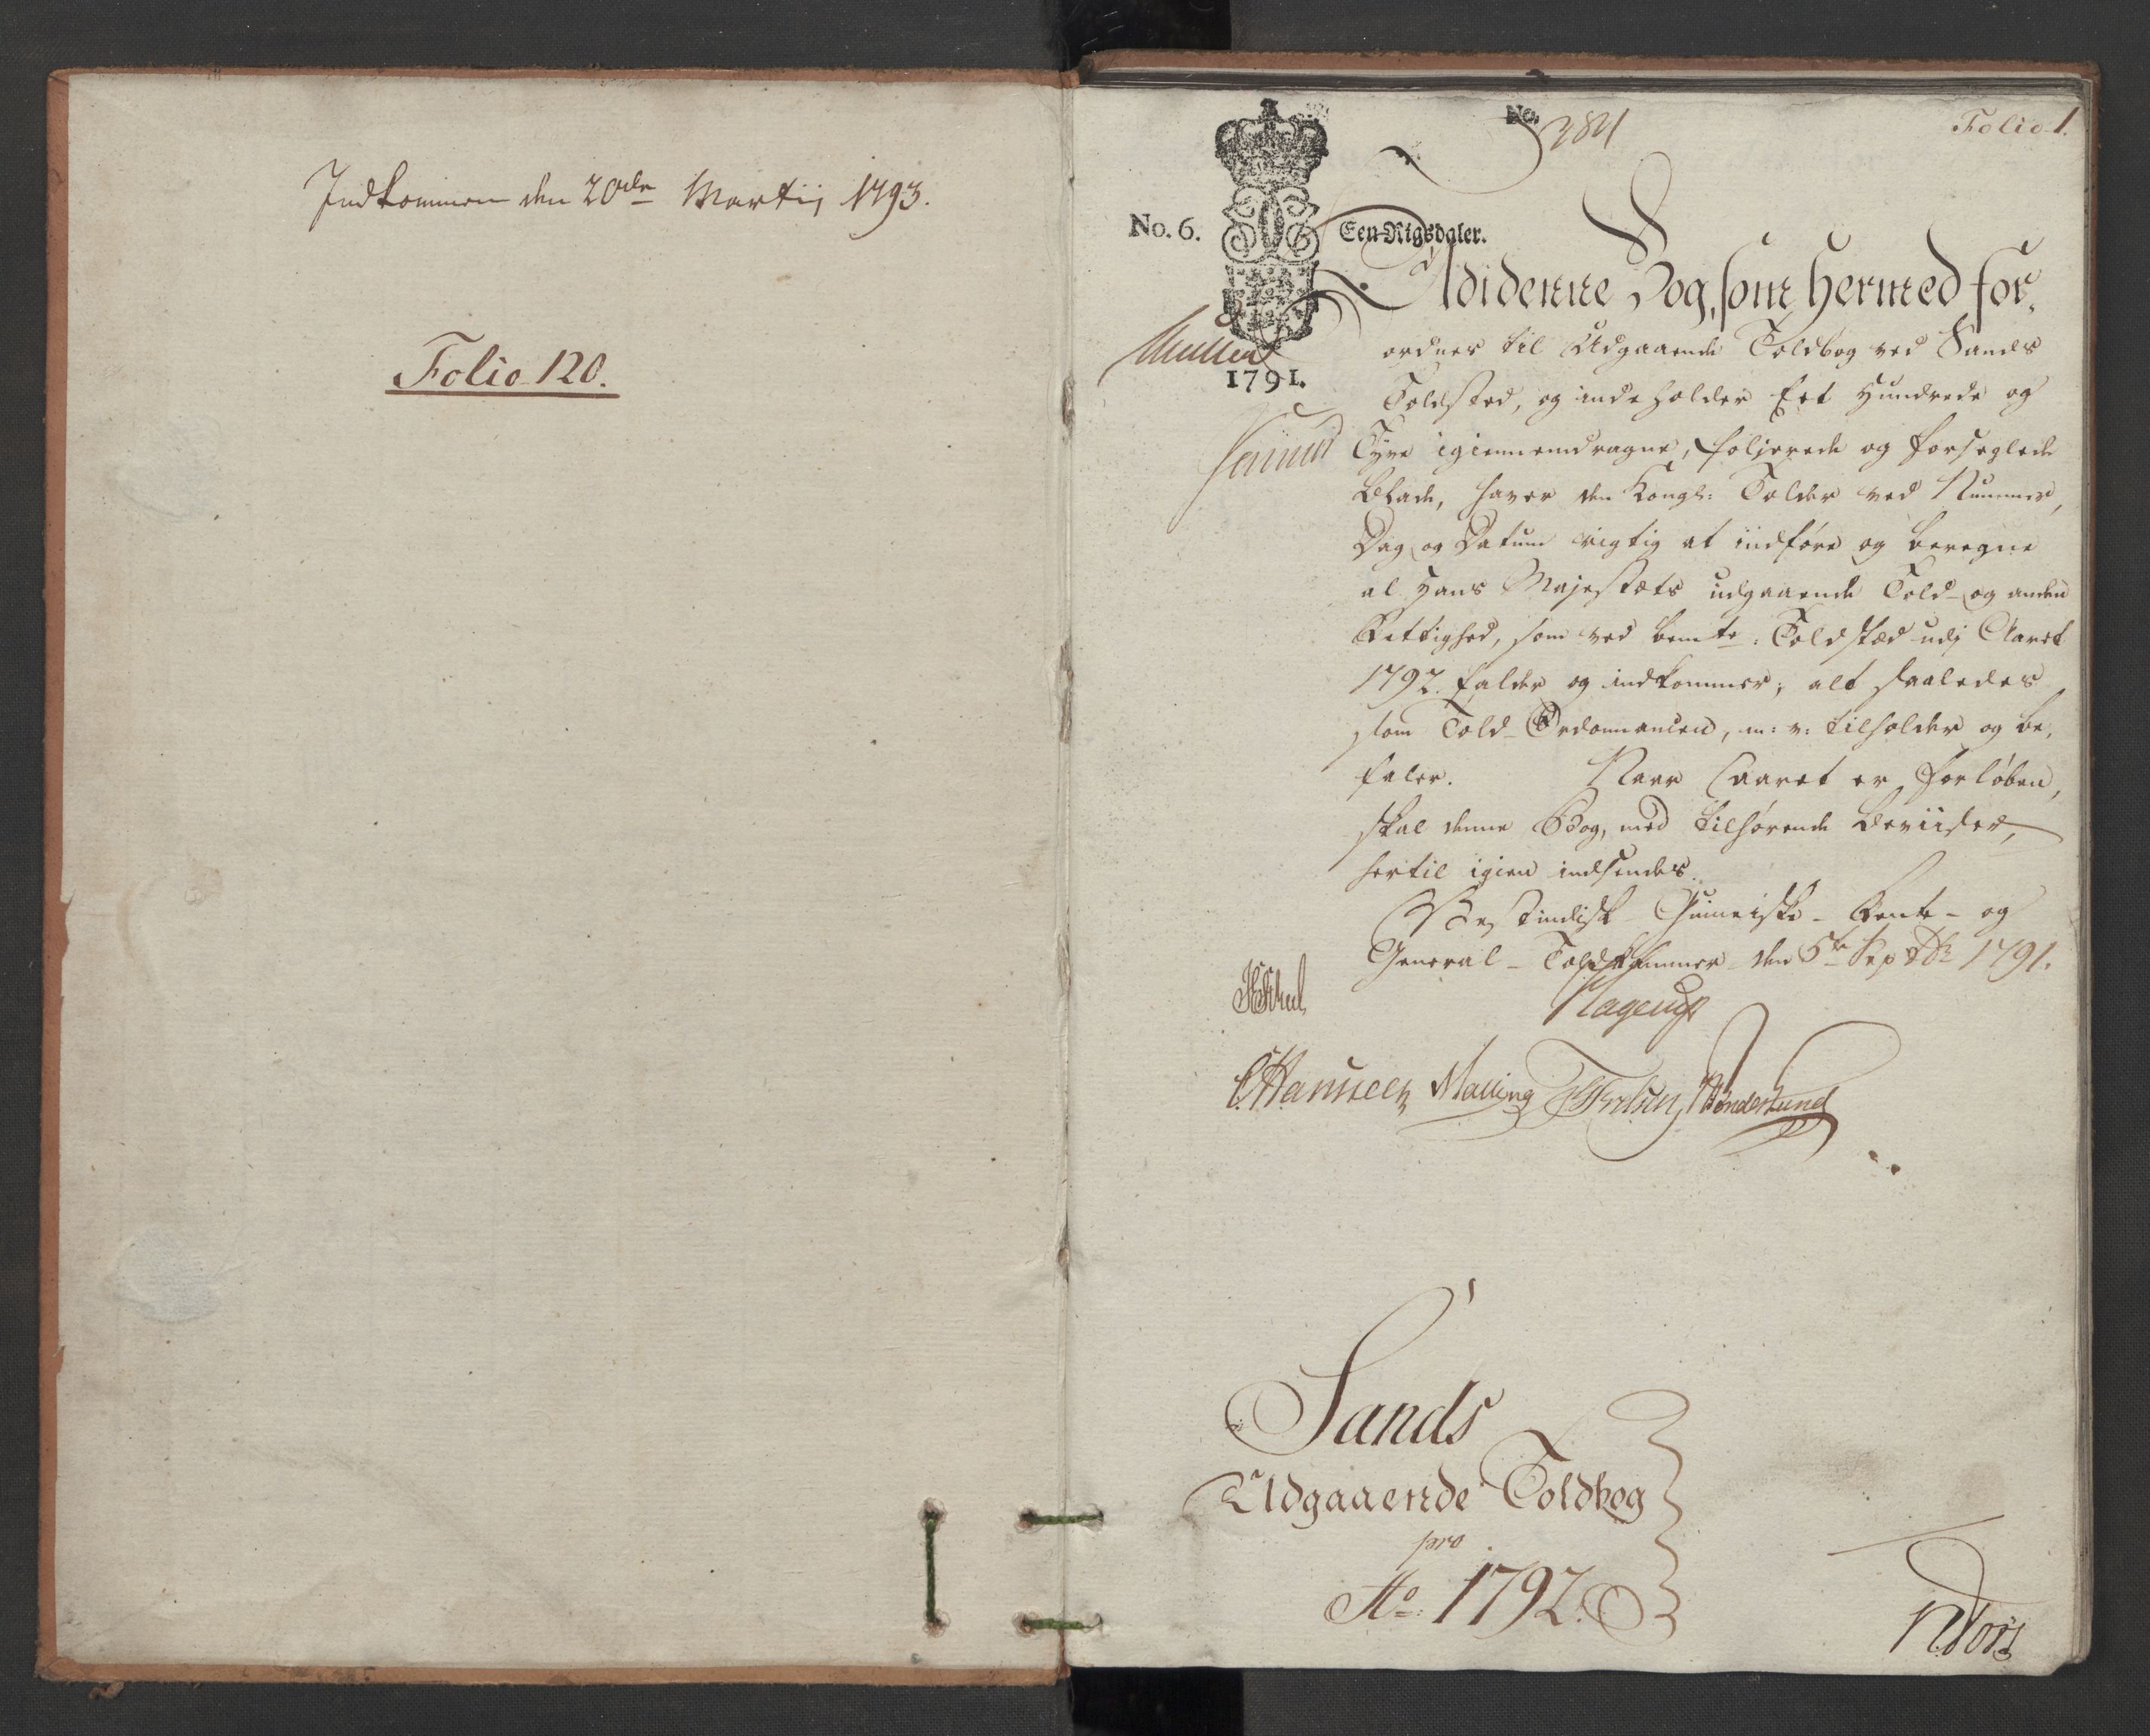 Indkommen den 20de Martij 1793.
Folio 120.
No. 384
Folio 1.
No. 6.
Een Rigsdaler.
1791.
Udi denne Bog, som hermed for-
ordnes til Udgaaende Toldbog ved Sands
Toldsted, og indeholder Eet Hundrede og
Tyve igiennemdragne, foljerede og forseglede
Blade, haver den Kongl: Tolder ved Nummer,
Dag og Datum rigtig at indføre og beregne
al Hans Majestæts udgaaende Told- og anden
Rettighed, som ved bemte: Toldsted udj Aaret
1792. falder og indkommer; alt saaledes
som Told-Ordonnancen, m: v: tilholder og be-
faler. Naar Aaret er forløben,
skal denne Bog, med tilhørende Beviiser,
hertil igien indsendes.
Vestindisk-Guineiske-Rente- og
General-Toldkammer den 5te Septbr 1791.
Hagerup
Malling
Sands
Udgaaende Toldbog
pro
Ao: 1792.